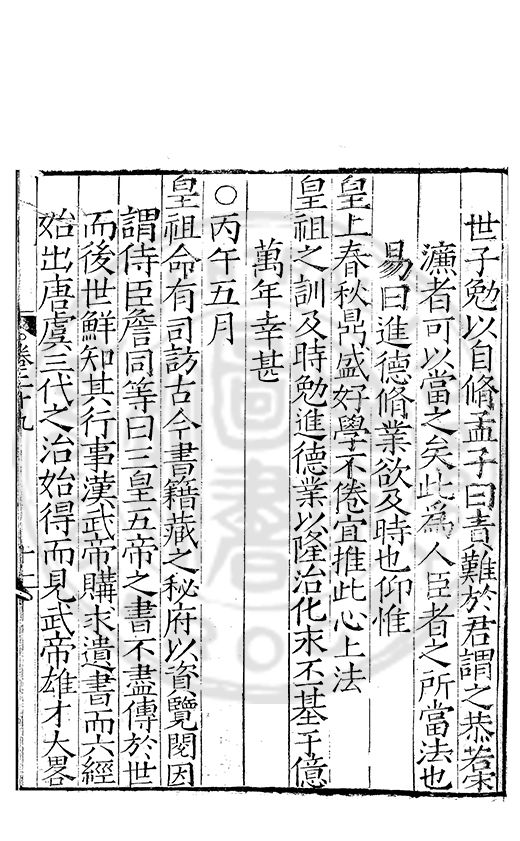 世子勉以自脩孟子曰責難於君謂之恭若宋
濂者可以當之矣此為人臣者之所當法也
易曰進德脩業欲及時也仰惟
皇上春秋鼎盛好學不倦宜推此心上法
皇祖之訓及時勉進德業以隆治化求丕基于億
萬年幸甚
○丙午五月
皇祖命有司訪古今書籍藏之秘府以資覽閱因
謂侍臣詹同等曰三皇五帝之書不盡傳於世
而後世鮮知其行事漢武帝購求遺書而六經
始出唐虞三代之治始得而見武帝雄才大畧
卷二十九
十二